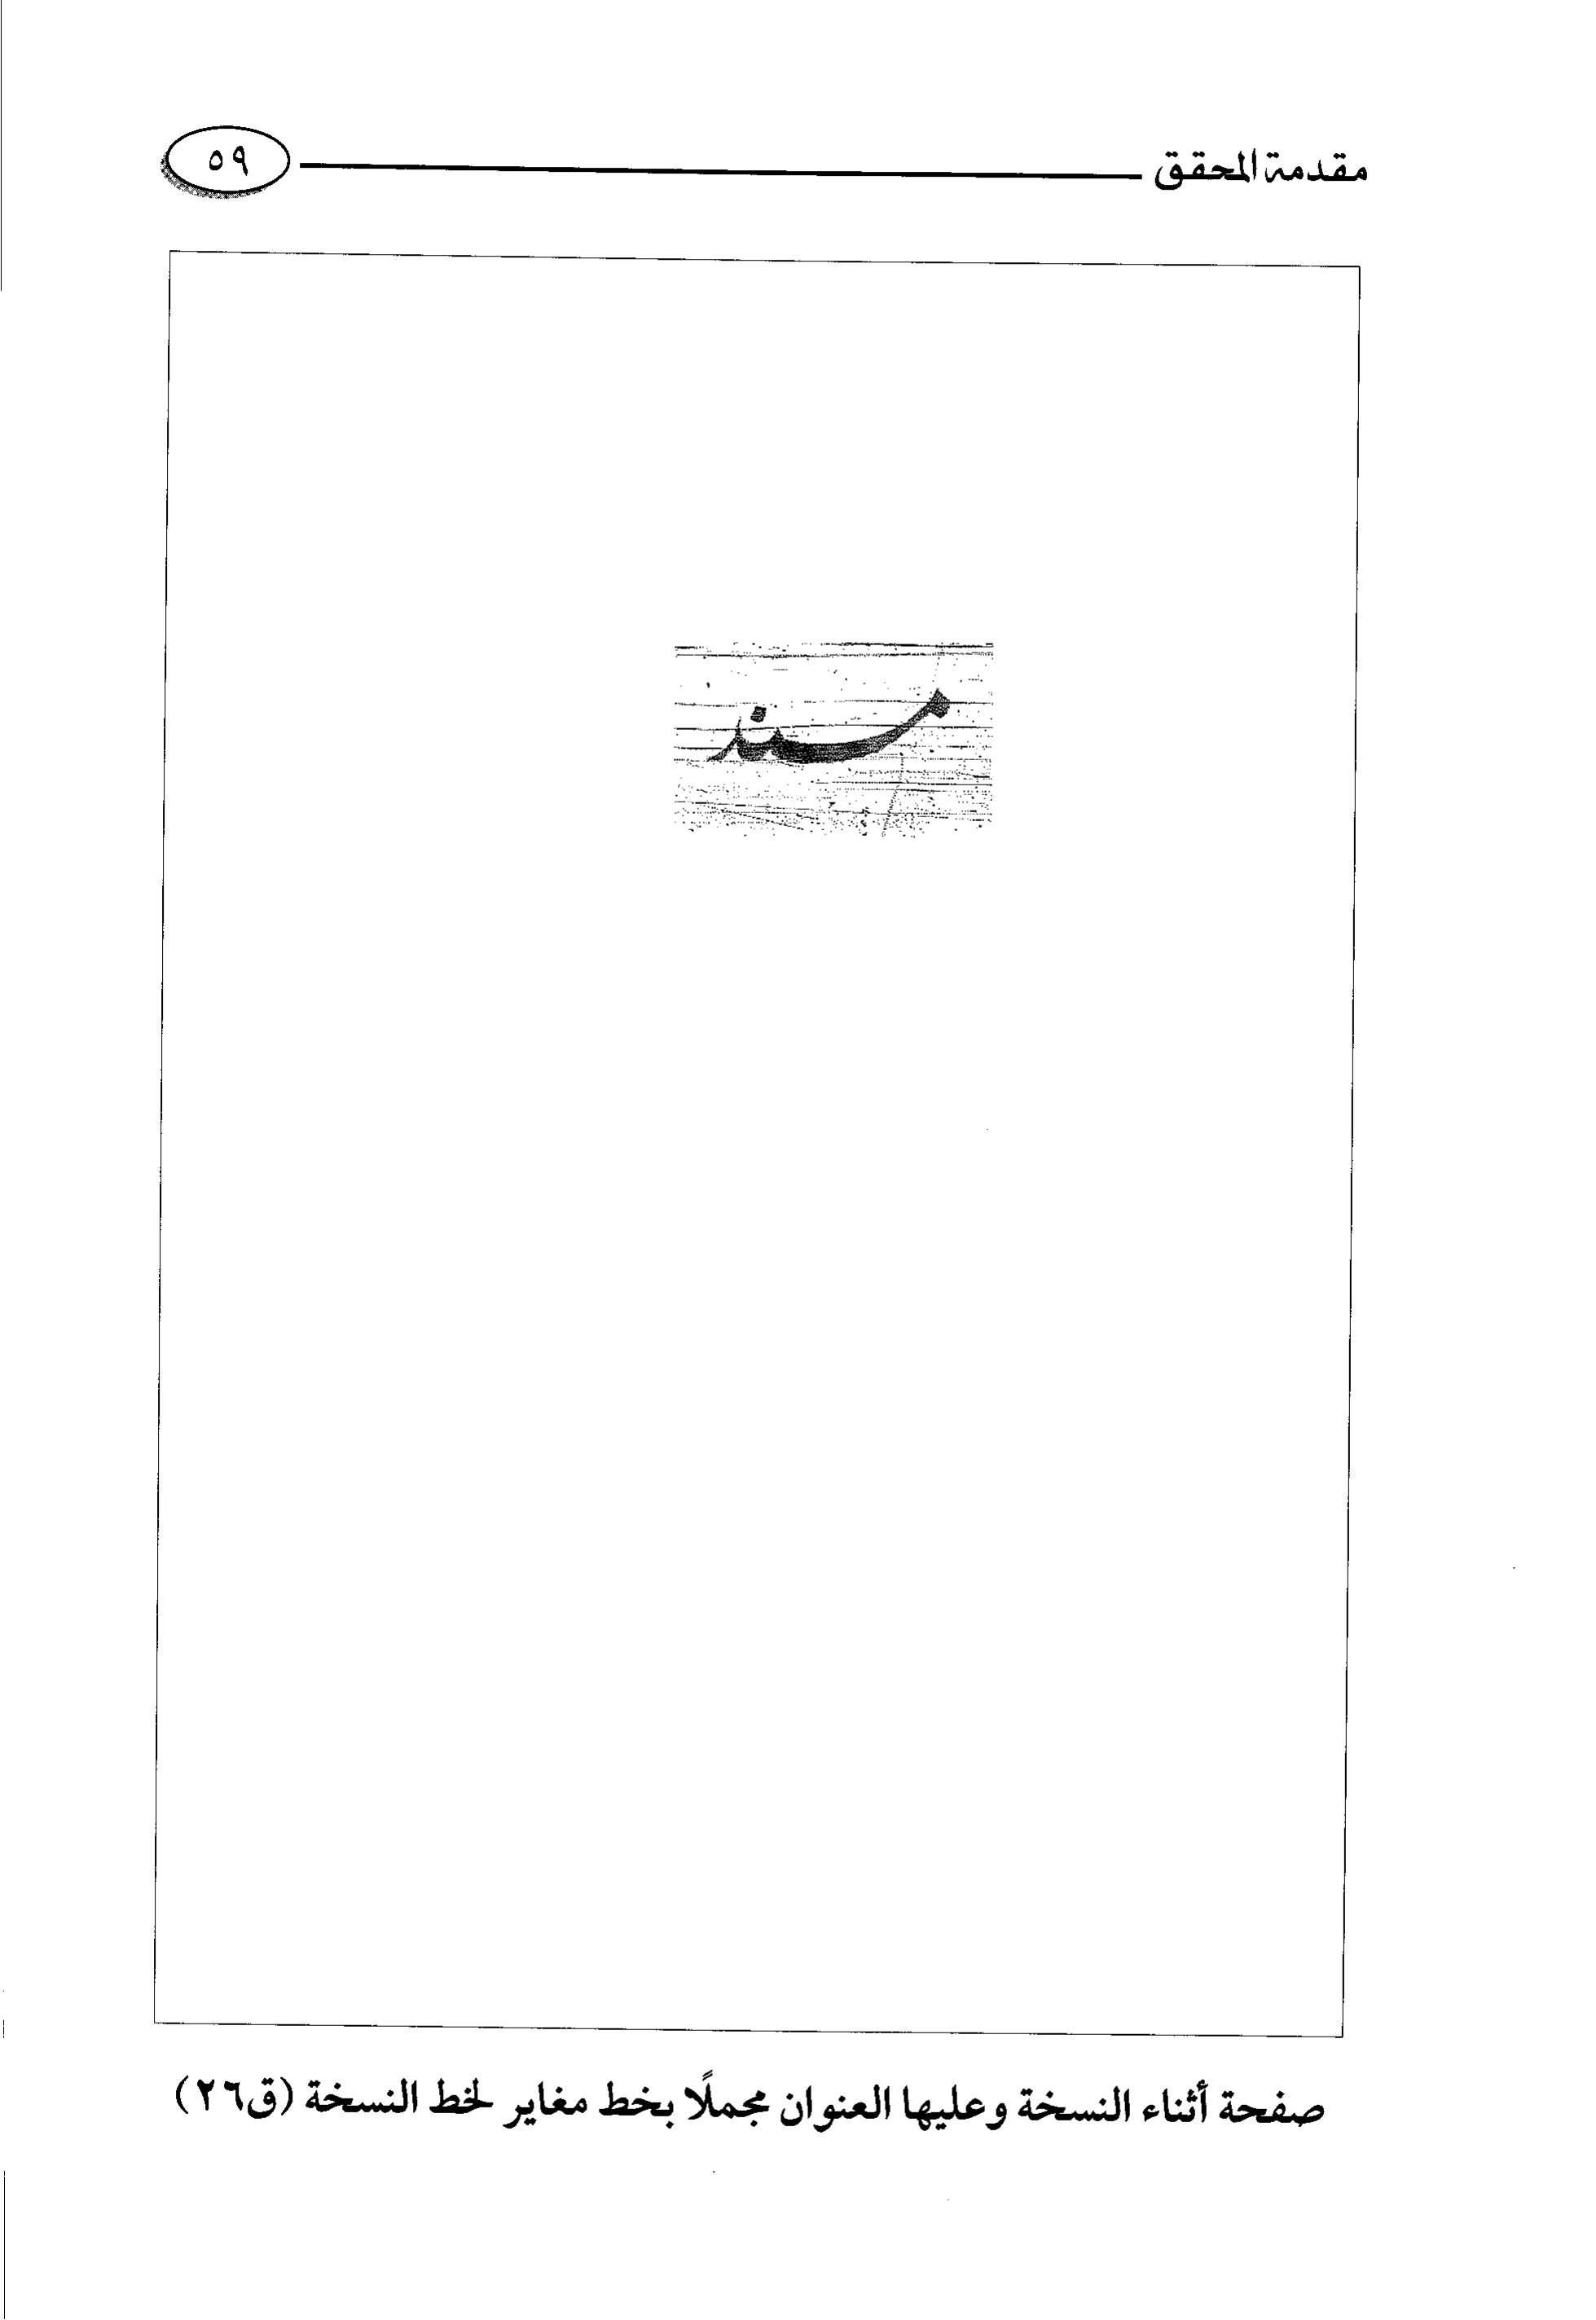 مقدمة المحقق ٥٩
مسند
صفحة أثناء النسخة وعليها العنوان مجملًا بخط مغاير لخط النسخة (ق٢٦)